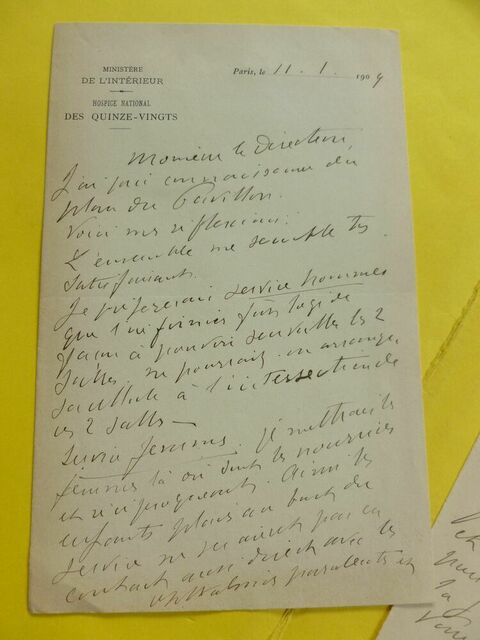 MINISTÈRE
DE L'INTÉRIEUR
HOSPICE NATIONAL
DES QUINZE-VINGTS
Paris, le 11. 1. 1904
Monsieur le Directeur
J'ai pris connaissance du
plan du Pavillon.
Voici mes réflexions:
L'ensemble me semble très
satisfaisant.
Je préfererais service hommes
que l'infirmier fût logé de
façon à pouvoir surveiller les 2
salles. ne pourrait-on arranger
sa cellule à l'intersection de
ces 2 salles —
Service femmes. je mettrais les
femmes là où sont les nourrices
et réciproquement. Ainsi les
enfants placés au bout du
service ne seraient pas en
contact aussi direct avec les
ophtalmies purulentes et